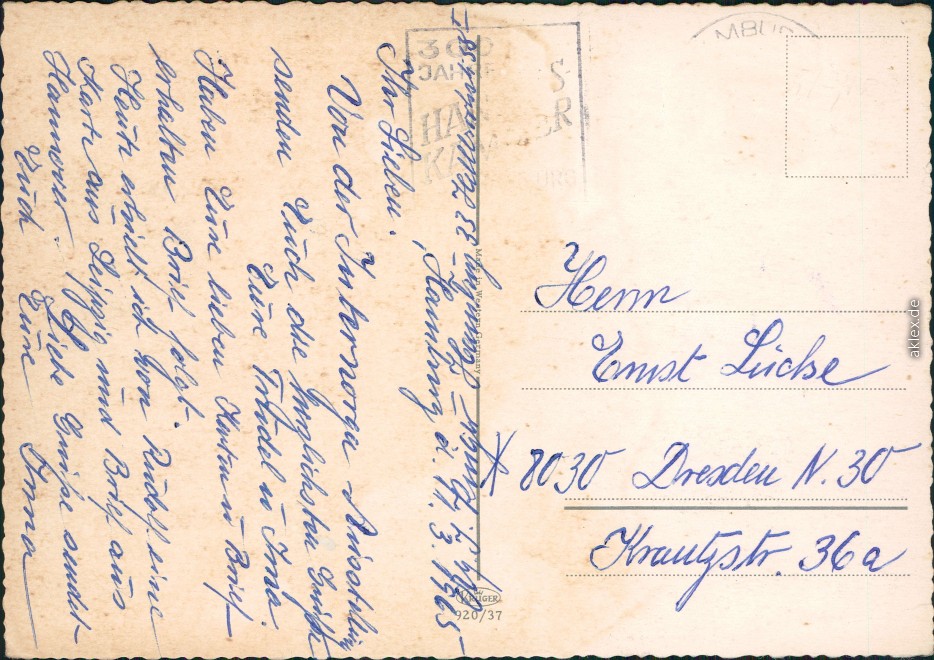 Hamburg d. 11. 3. 1965
Ihr Lieben!
Von der Internorga Ausstellung
senden Euch die herzlichsten Grüße
Eure Trudel u Irma
Haben Eure lieben Karten u Brief
erhalten Brief folgt.
Heute erhielt ich von Rudolf eine
Karte aus Leipzig und Brief aus
Hannover. Liebe Grüße sendet
Euch Eure Irma
300
JAHRE
HA
S
KA ER
MBU
Made in Western Germany
KRÜGER
920/37
Herrn
Ernst Lüchse
X 8030 Dresden N. 30
Krautzstr. 36a
aklex.de